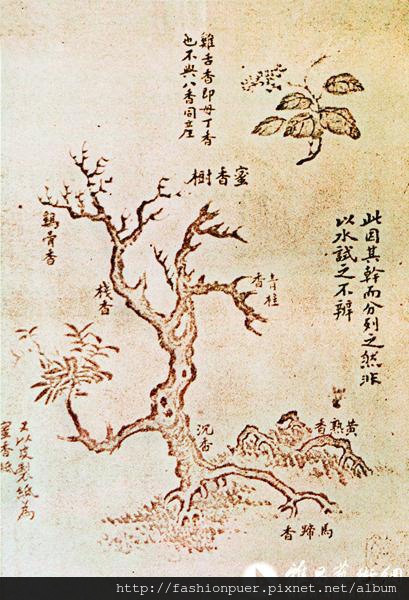 雞舌香即母丁香
也不與八香同產
蜜香樹
此因其幹而分列之然非
以水試之不辨
青桂
香
鷄骨香
棧香
沉香
黃熟香
馬蹄香
又以皮製紙為
蜜香紙
http://fashionpuer.pixnet.net/album